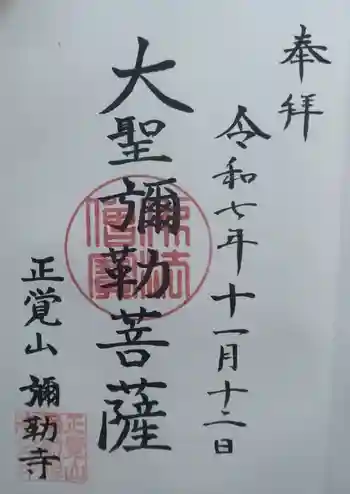 奉拝
令和七年十一月十二日
大聖彌勒菩薩
正覚山 彌勒寺
正覚山